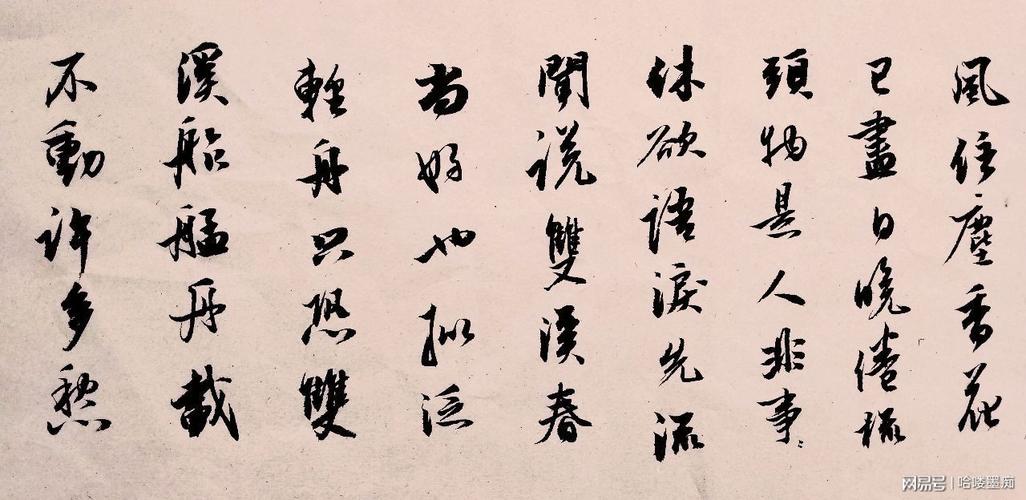 風住塵香花
已盡日晚倦梳
頭物是人非事〻
休欲語淚先流
聞説雙溪春
尚好也擬泛
輕舟只恐雙
溪船艋舟載
不動許多愁
网易号 | 哈喽墨痴